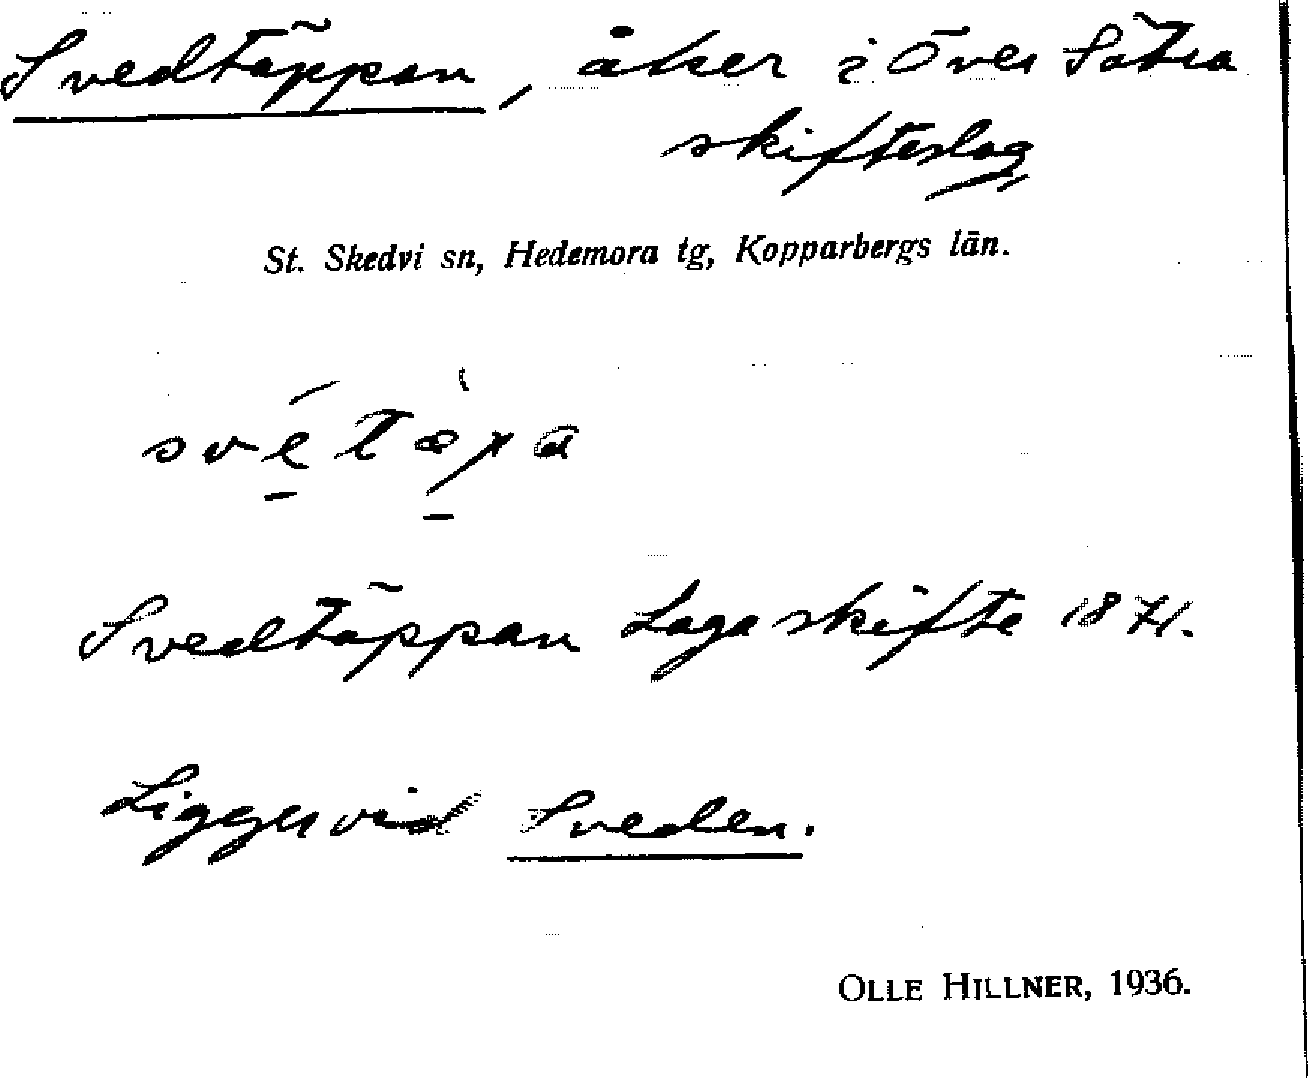 Svedtäppan, åker i Över Sätra
skifteslag,
St. Skedvi sn, Hedemora tg, Kopparbergs län.
Svedtäppan Laga skifte 1871.
Ligger vid Sveden.
OLLE HILLNER, 1936.